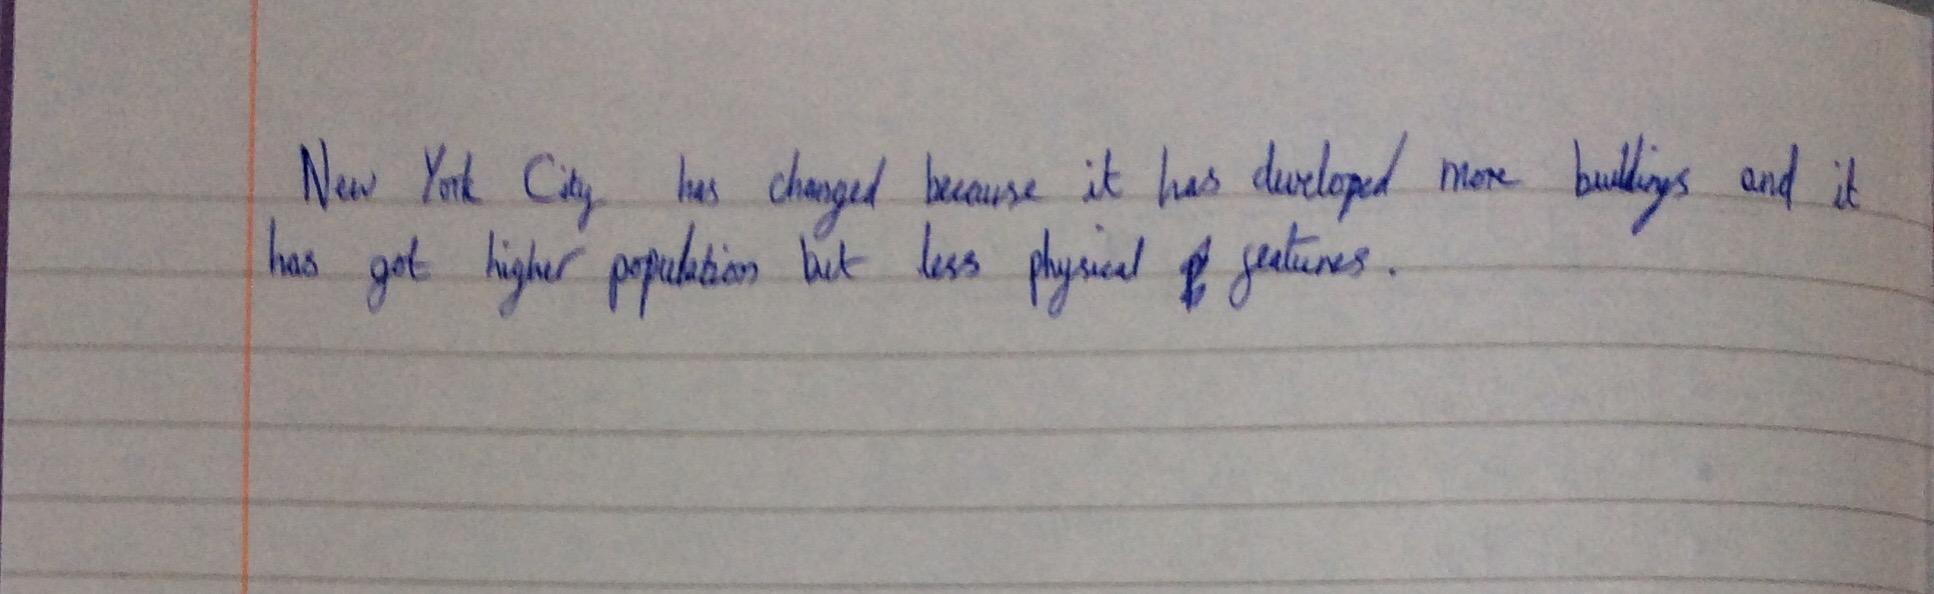 New York City has changed because it has developed more buildings and it
has got higher population but less physical features.